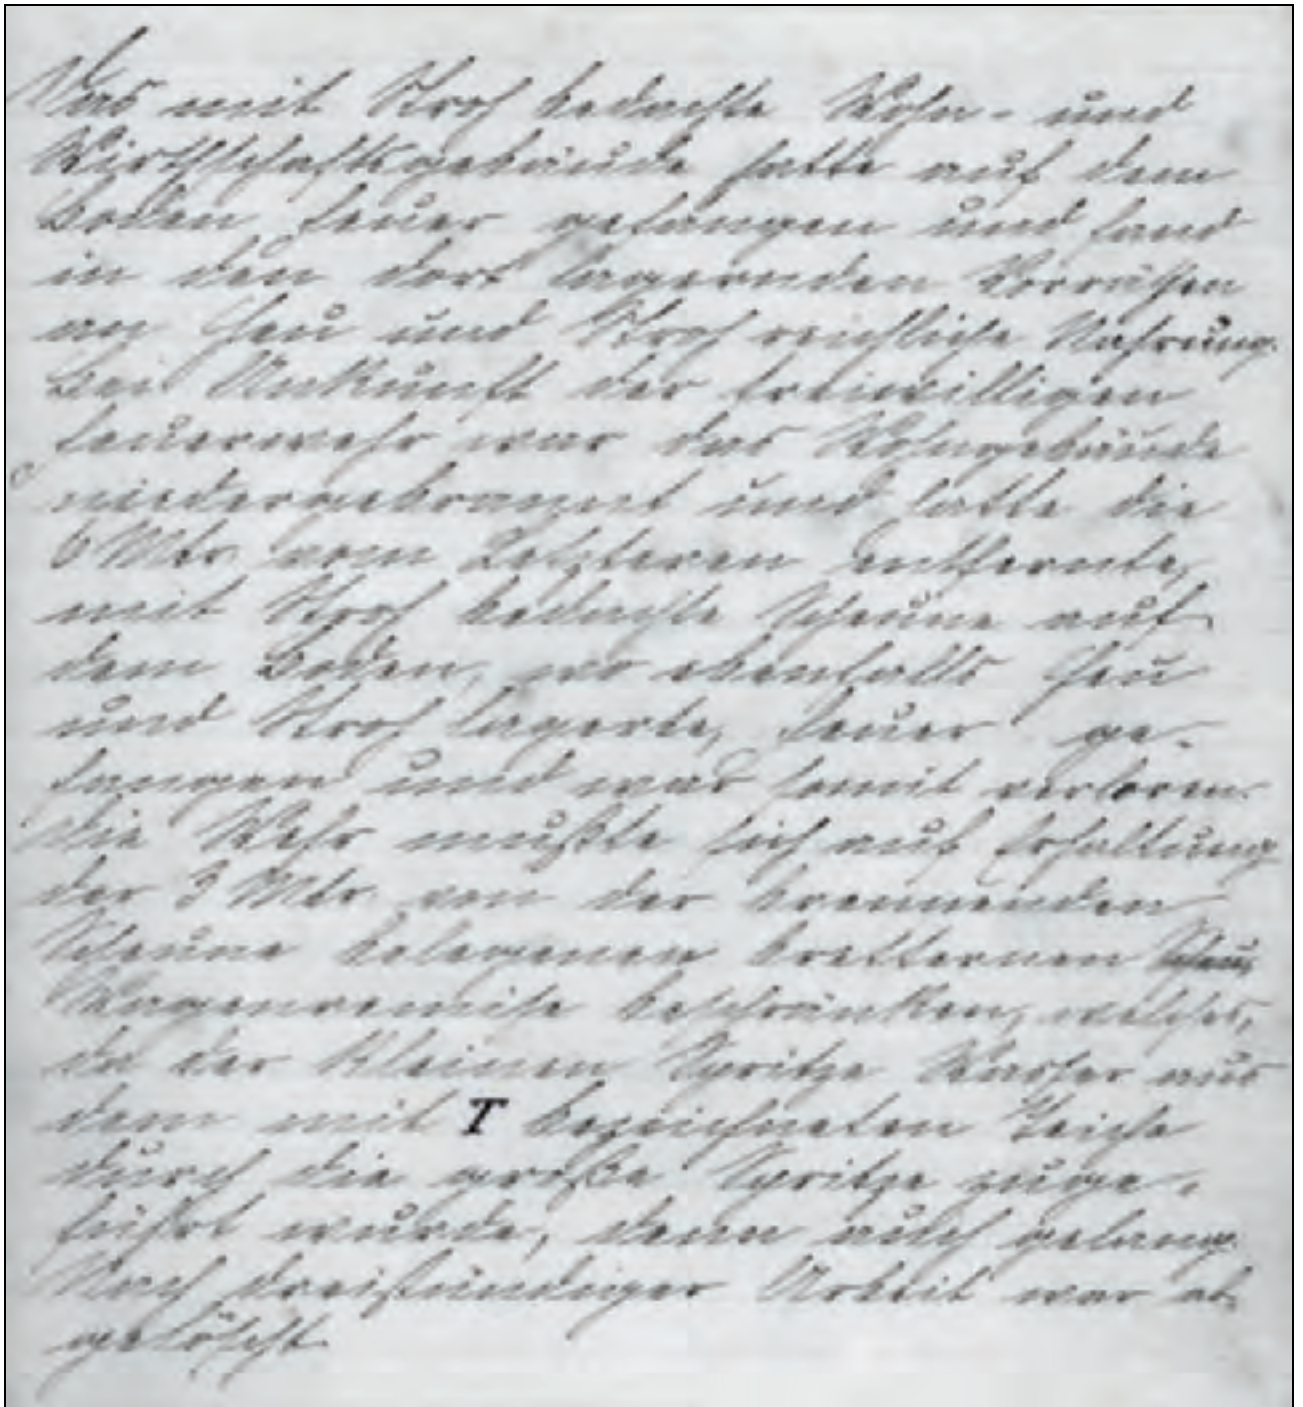 Das mit Stroh bedachte Wohn- und
Wirthschaftsgebäude hatte auf dem
Boden Feuer gefangen und fand
in den dort lagernden Vorräthen
an Heu und Stroh reichliche Nahrung.
Bei Ankunft der freiwilligen
Feuerwehr war das Wohngebäude
niedergebrannt und hatte die
6 Mtr. vom Letzteren entfernte,
mit Stroh bedachte Scheune auf
dem Boden, wo ebenfalls Heu
und Stroh lagerte, Feuer ge-
fangen und war somit verloren.
Die Wehr mußte sich auf Erhaltung
der 3 Mtr. von der brennenden
Scheune belegenen bretternen
Wagenremise beschränken, welches,
da der kleinen Spritze Wasser aus
dem mit T bezeichneten Teiche
durch die große Spritze zuge-
führt wurde, denn auch gelang.
Nach dreistündiger Arbeit war ab-
gelöscht.